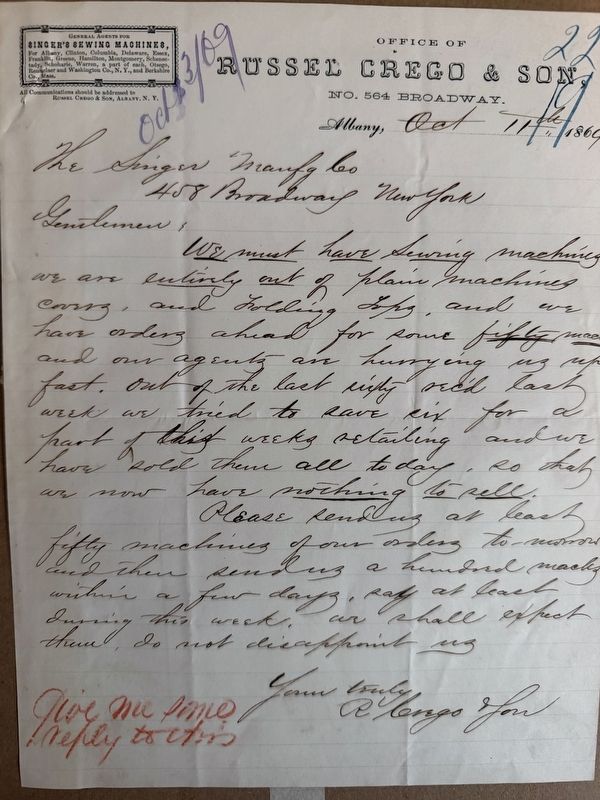 GENERAL AGENTS FOR
SINGER'S SEWING MACHINES,
For Albany, Clinton, Columbia, Delaware, Essex,
Franklin, Greene, Hamilton, Montgomery, Schenec-
tady, Schoharie, Warren, a part of each, Otsego,
Rensselaer and Washington Co., N. Y., and Berkshire
Co., Mass.
All Communications should be addressed to
RUSSEL CREGO & SON, ALBANY, N. Y.
Oct 3/09
22
OFFICE OF
RUSSEL CREGO & SON,
NO. 564 BROADWAY.
Albany, Oct 11th 1869
The Singer Manfg Co
458 Broadway New York
Gentlemen;
We must have Sewing machines
we are entirely out of plain machines
covers, and Folding Tops, and we
have orders ahead for some fifty mac
and our agents are hurrying us up
fast. Out of the last sixty rec'd last
week we tried to save six for a
part of this weeks retailing and we
have sold them all to day, so that
we now have nothing to sell.
Please send us at least
fifty machines of our orders to-morrow
and then send us a hundred machs
within a few days, say at least
during this week, we shall expect
them, do not disappoint us
Yours truly
R Crego & Son
Give me some
reply to this